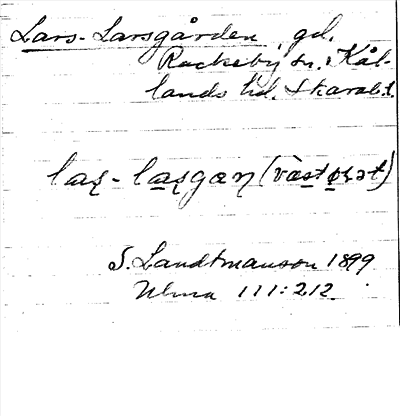 Lars-Larsgården, gd.
Rackeby sn. Kål-
lands hd. Skarab.l.
laʂ-laʂgaɳ (väst ø̱ʂət)
S. Landtmanson 1899
Ulma 111:212.